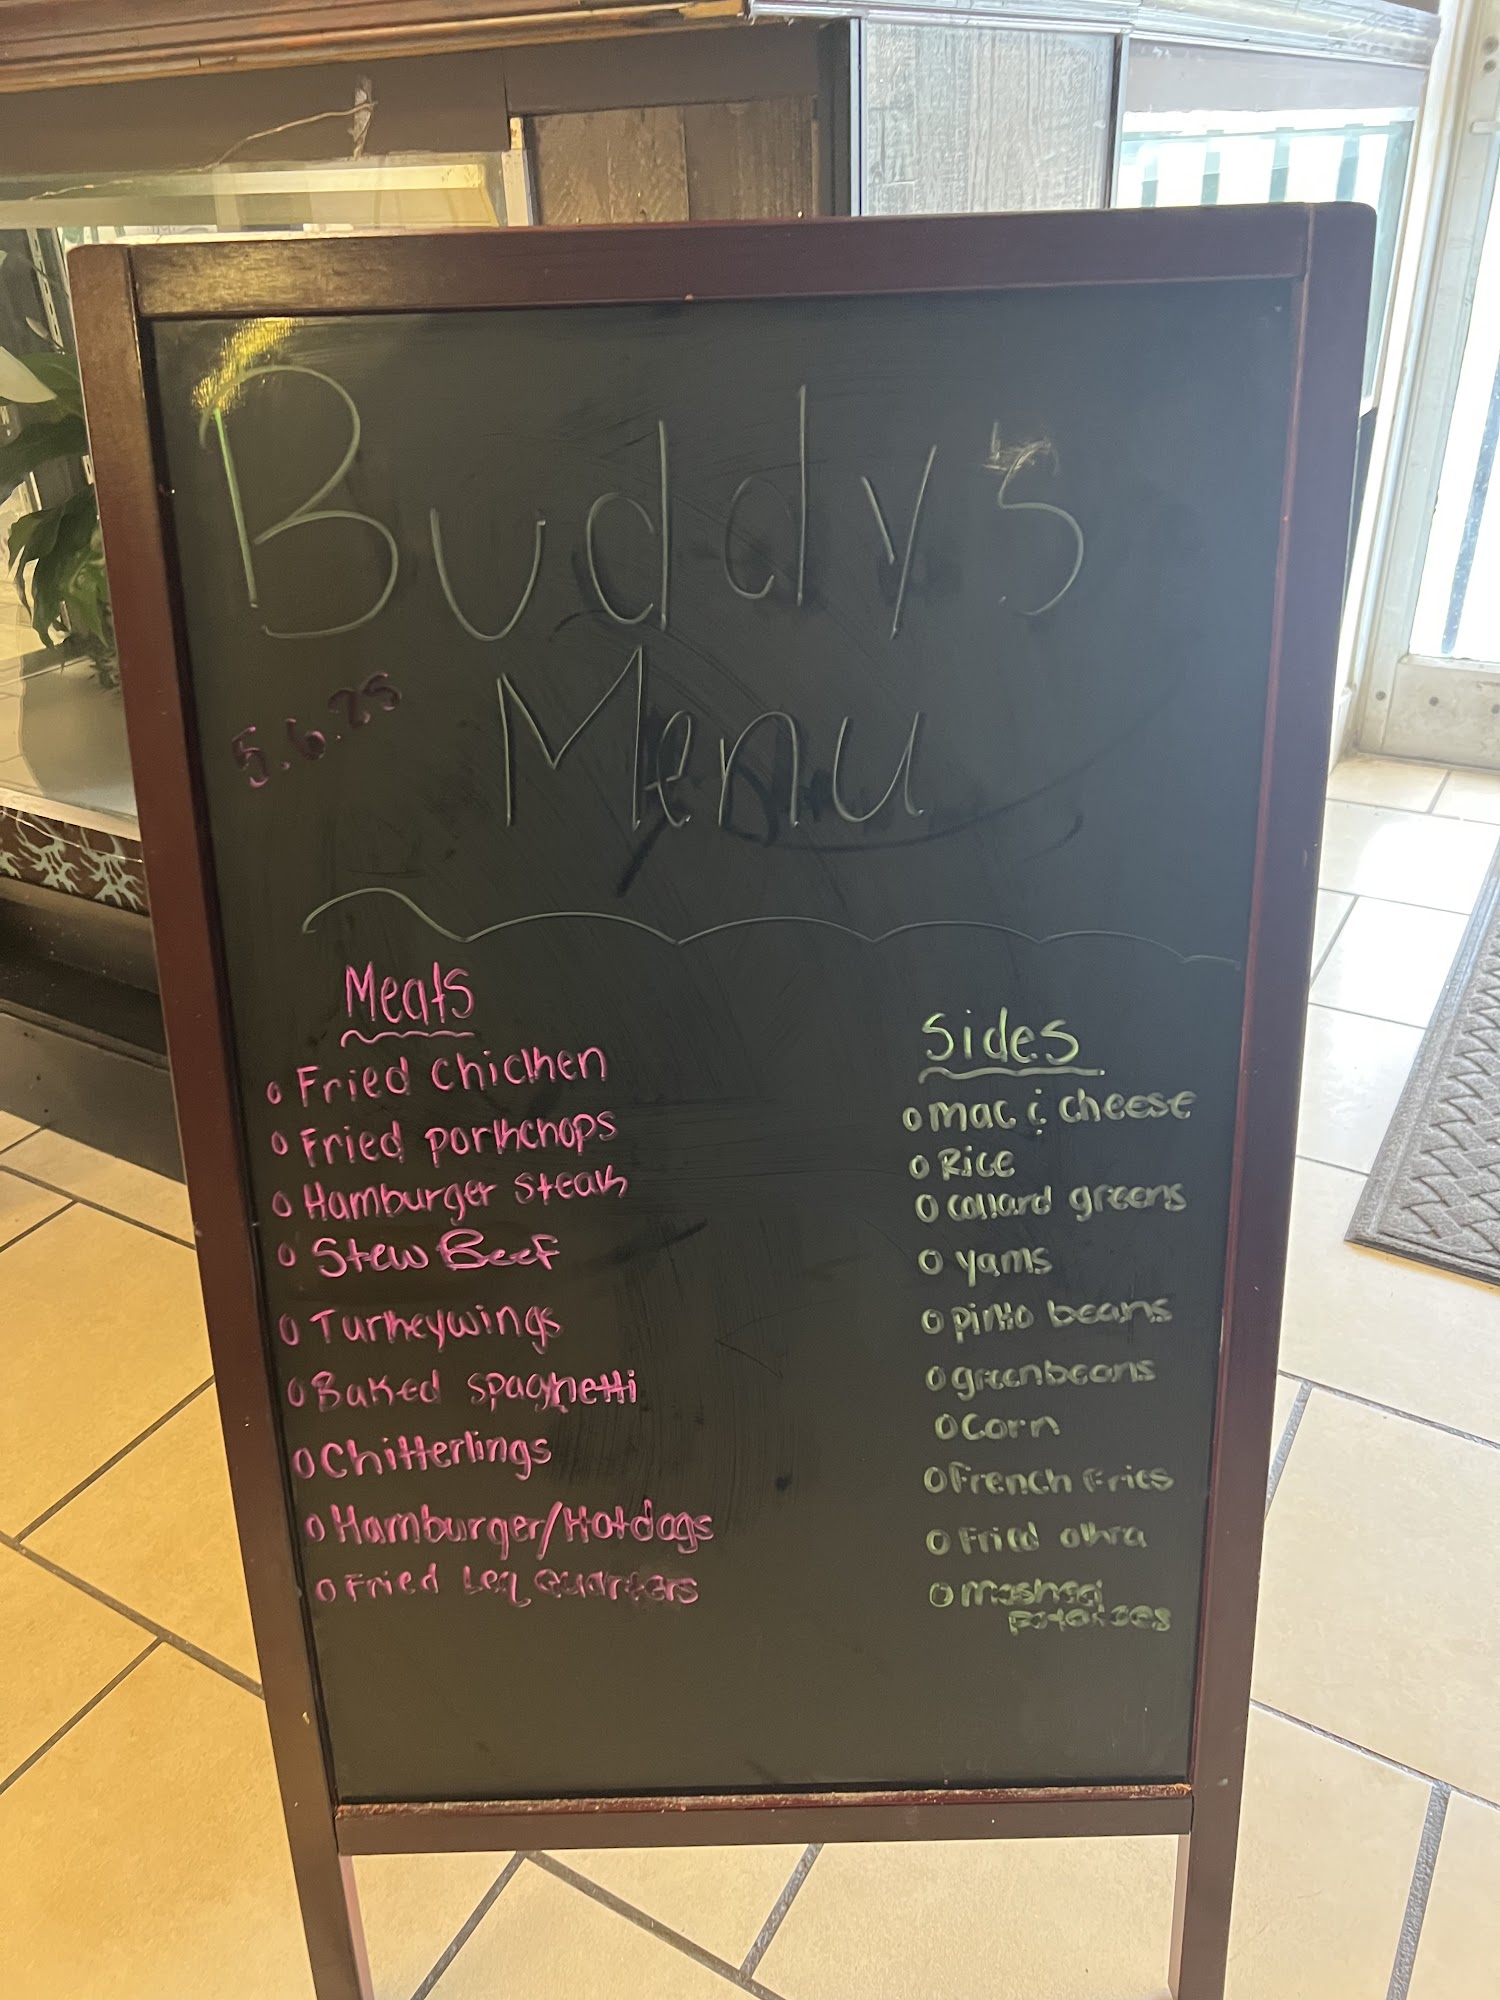 Buddy's
Menu
5.6.25
Meats
o Fried chicken
o Fried porkchops
o Hamburger steak
o Stew Beef
o Turkeywings
o Baked spaghetti
o Chitterlings
o Hamburger/Hotdogs
o Fried Leg Quarters
Sides
o mac & cheese
o Rice
o collard greens
o yams
o pinto beans
o greenbeans
o corn
o French Fries
o Fried okra
o mashed
potatoes